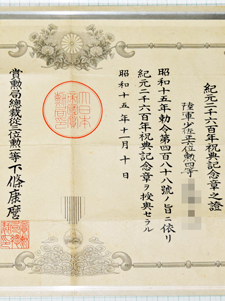 紀元二千六百年祝典記念章之證
陸軍少佐正六位勲四等
昭和十五年勅令第四百八十八號ノ旨ニ依リ
紀元二千六百年祝典記念章ヲ授與セラル
昭和十五年十一月十日
賞勲局總裁從三位勲一等下條康麿
大日本